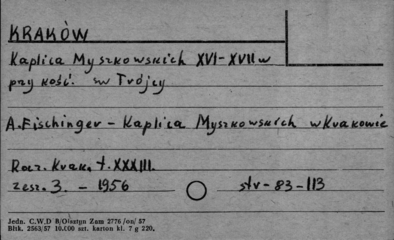 KRAKÓW
Kaplica Myszkowskich XVI-XVII w
przy kość. św Trójcy
A. Fischinger - Kaplica Myszkowskich w Krakowie
Rocz. Krak. t. XXXIII.
zesz. 3. - 1956 str - 83 - 113
Jedn. C.W.D B/Olsztyn Zam 2776 /on/ 57
Błtk. 2563/57 10.000 szt. karton kl. 7 g 220.